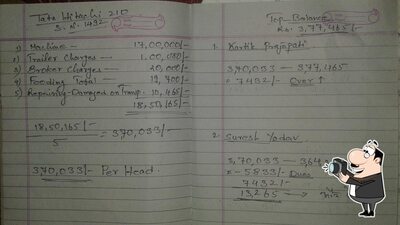 Tata Hitachi 210
S. N. 1432
1) Machine — 17,00,000/-
2) Trailer Charges — 1,00,000/-
3) Broker Charges —
4) Fooding Total — 19,700/-
5) Repairing Damaged on Transp. 10,465/-
18,50,165/-
18,50,165/- = 3,70,033/-
5
3,70,033/- Per Head.
Top Balance
Rs. 3,77,465/-
1. Kartik Prajapati
3,70,033 — 3,77,465
= 7432/- Over ↑
2. Suresh Yadav
3,70,033 — 3,64
= - 5833/- Dues
7432/-
13,265 →